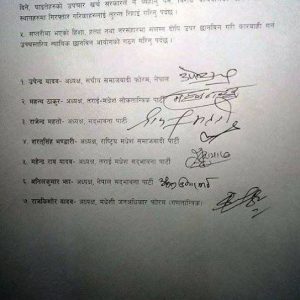 दिने, घाइतेहरुको उपचार खर्च सरकारले
स्थानहरुमा गिरफ्तार गरिएकाहरुलाई तुरुन्त रिहाई गरिनु पर्दछ ।
५. सप्तरीमा भएको हिंसा, हत्या तथा सरसहारमा संलग्न दोषि उपर छानविन गरी कारवाही गर्न
उच्चस्तरीय न्यायिक छानविन आयोगको गठन गरिनु पर्दछ ।
१. उपेन्द्र यादव- अध्यक्ष, संघीय समाजवादी फोरम, नेपाल
२. महन्थ ठाकुर- अध्यक्ष, तराई-मधेश लोकतान्त्रिक पार्टी
३. राजेन्द्र महतो- अध्यक्ष, सदभावना पार्टी
४. शरतसिंह भण्डारी- अध्यक्ष, राष्ट्रिय मधेश समाजवादी पार्टी
५. महेन्द्र राय यादव- अध्यक्ष, तराई मधेश सदभावना पार्टी
६. अनिलकुमार झा- अध्यक्ष, नेपाल सदभावना पार्टी
७. राजकिशोर यादव- अध्यक्ष, मधेशी जनअधिकार फोरम (गणतान्त्रिक)